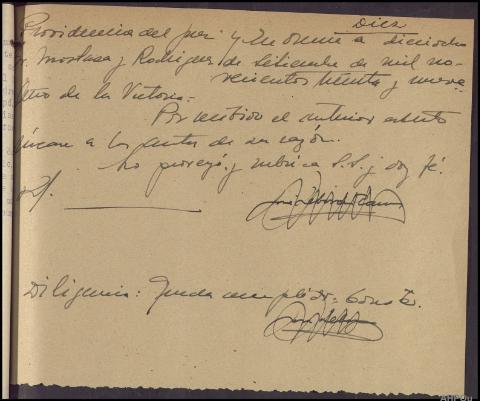 Diez
Providencia del juez y En Orense a dieciocho
Sr. Mostaza y Rodriguez de setiembre de mil no-
vecientos treinta y nueve
Año de la Victoria=
Por recibido el anterior exhorto
únase a los autos de su razón.
Lo proveyó y rubrica S.S. y doy fé.
Diligencia: Queda cumplido= Conste.